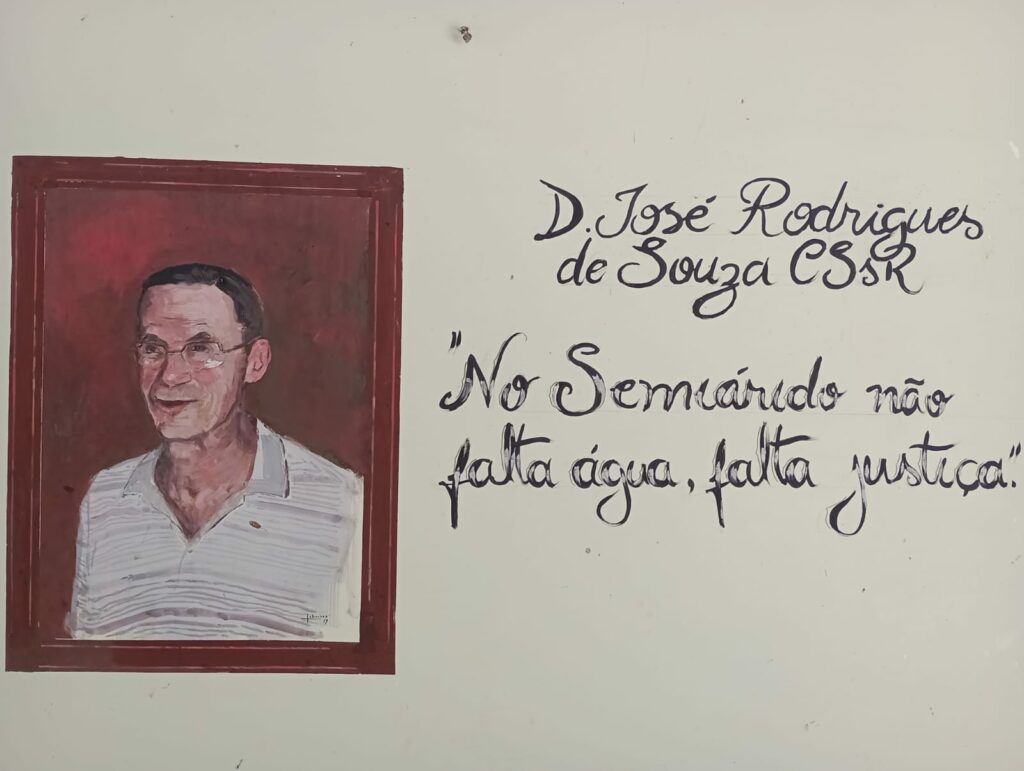 D. José Rodrigues
de Souza CSsR
"No Semiárido não
falta água, falta justiça."